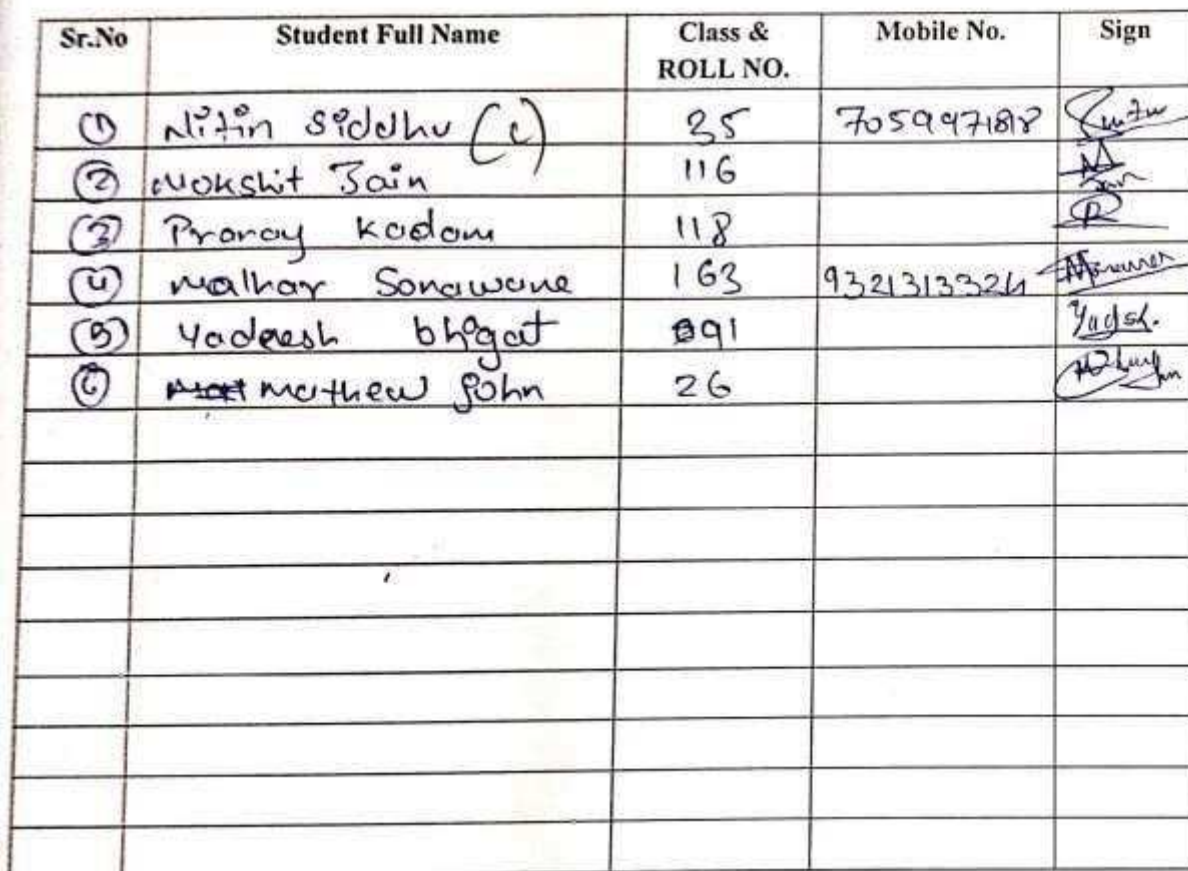 Sr.No Student Full Name Class & ROLL NO. Mobile No. Sign
1 Nitin Siddhu (c) 35 7059971818
2 Mokshit Jain 116
3 Pranay Kadam 118
4 Malhar Sonawane 163 9321313324
5 Yadnesh bhagat 91 Yadsh.
6 mathew John 26